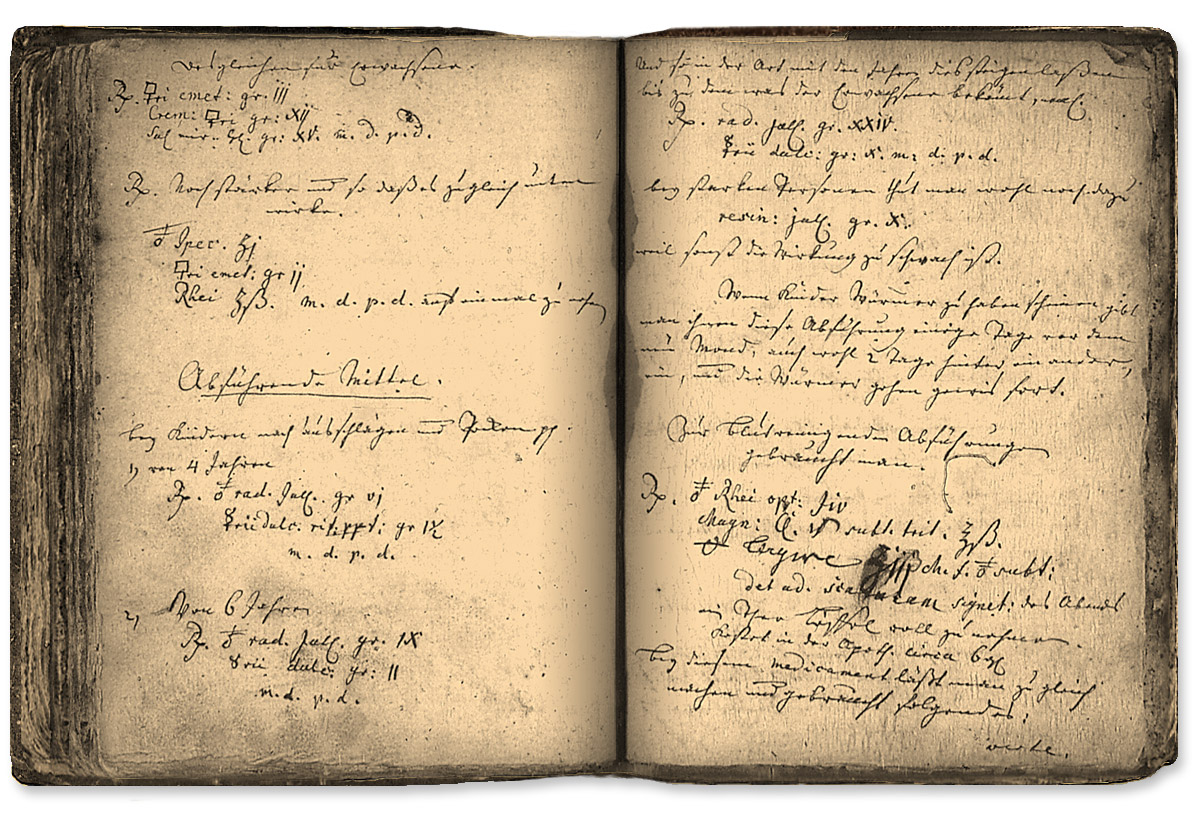 desgleichen für Erwachsene.
Rp. 🜿ri emet: gr. III
Crem: 🜿ri gr: XII
gr: XV. m. d. p. d.
Rp. Noch stärker und so daß es zugleich unten
wirke.
Ipec. ʒj
🜿ri emet: gr ij
Rhei ʒß. m. d. p. d. auf einmal zu nehmen
Abführende Mittel.
bey Kindern nach ausschlägen und Pocken pp.
1) von 4 Jahren
Rp. rad. Jall. gr vj
dulc: gr IX
m. d. p. d.
2) Von 6 Jahren
Rp. rad. Jall. gr. IX
dulc: gr: II
m. d. p. d.
Und so in der Art mit den Jahren dies steigen laßen
bis zu dem was der Erwachsene bekömt,
Rp. rad. jall. gr. XXIV.
dulc: gr: X. m: d. p. d.
bey starken Personen thut man wohl noch dazu
resin: jall. gr. X.
weil sonst die Wirkung zu schwach ist.
Wenn Kinder Würmer zu haben scheinen gibt
man ihnen diese Abführung einige Tage vor dem
neu Mond, auch wohl 2 Tage hinter einander,
ein, und die Würmer gehen gewis fort.
Zur blutreinigenden Abführung
gebraucht man.
Rp. Rhei opt: ʒiv
Magn: subt. trit. ʒß.
subt:
det ad. signet: des Abends
ein Thee Löffel voll zu nehmen
Kostet in der Apoth. circa 6 gl
bey diesem medicament läßt man zugleich
machen und gebraucht folgendes:
verte.